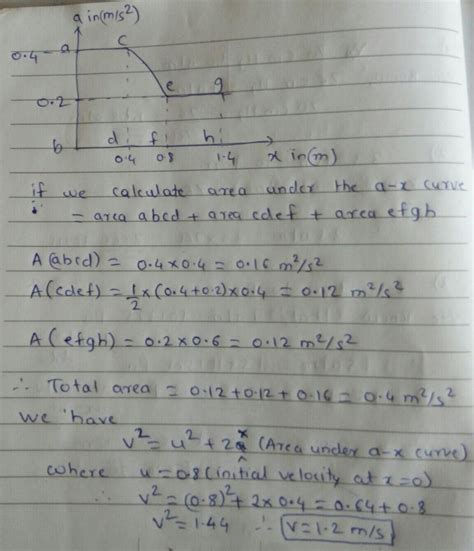 a in(m/s²)
0.4 a c
0.2 e g
b d f h
0.4 0.8 1.4 x in(m)
if we calculate area under the a-x curve
= area abcd + area cdef + area efgh
A(abcd) = 0.4×0.4 = 0.16 m²/s²
A(cdef) = 1/2 × (0.4+0.2)×0.4 = 0.12 m²/s²
A(efgh) = 0.2×0.6 = 0.12 m²/s²
∴ Total area = 0.12+0.12+0.16 = 0.4 m²/s²
we have
v² = u² + 2× (Area under a-x curve)
where u = 0.8 (initial velocity at x=0)
∴ v² = (0.8)² + 2×0.4 = 0.64 + 0.8
v² = 1.44 ∴ v = 1.2 m/s